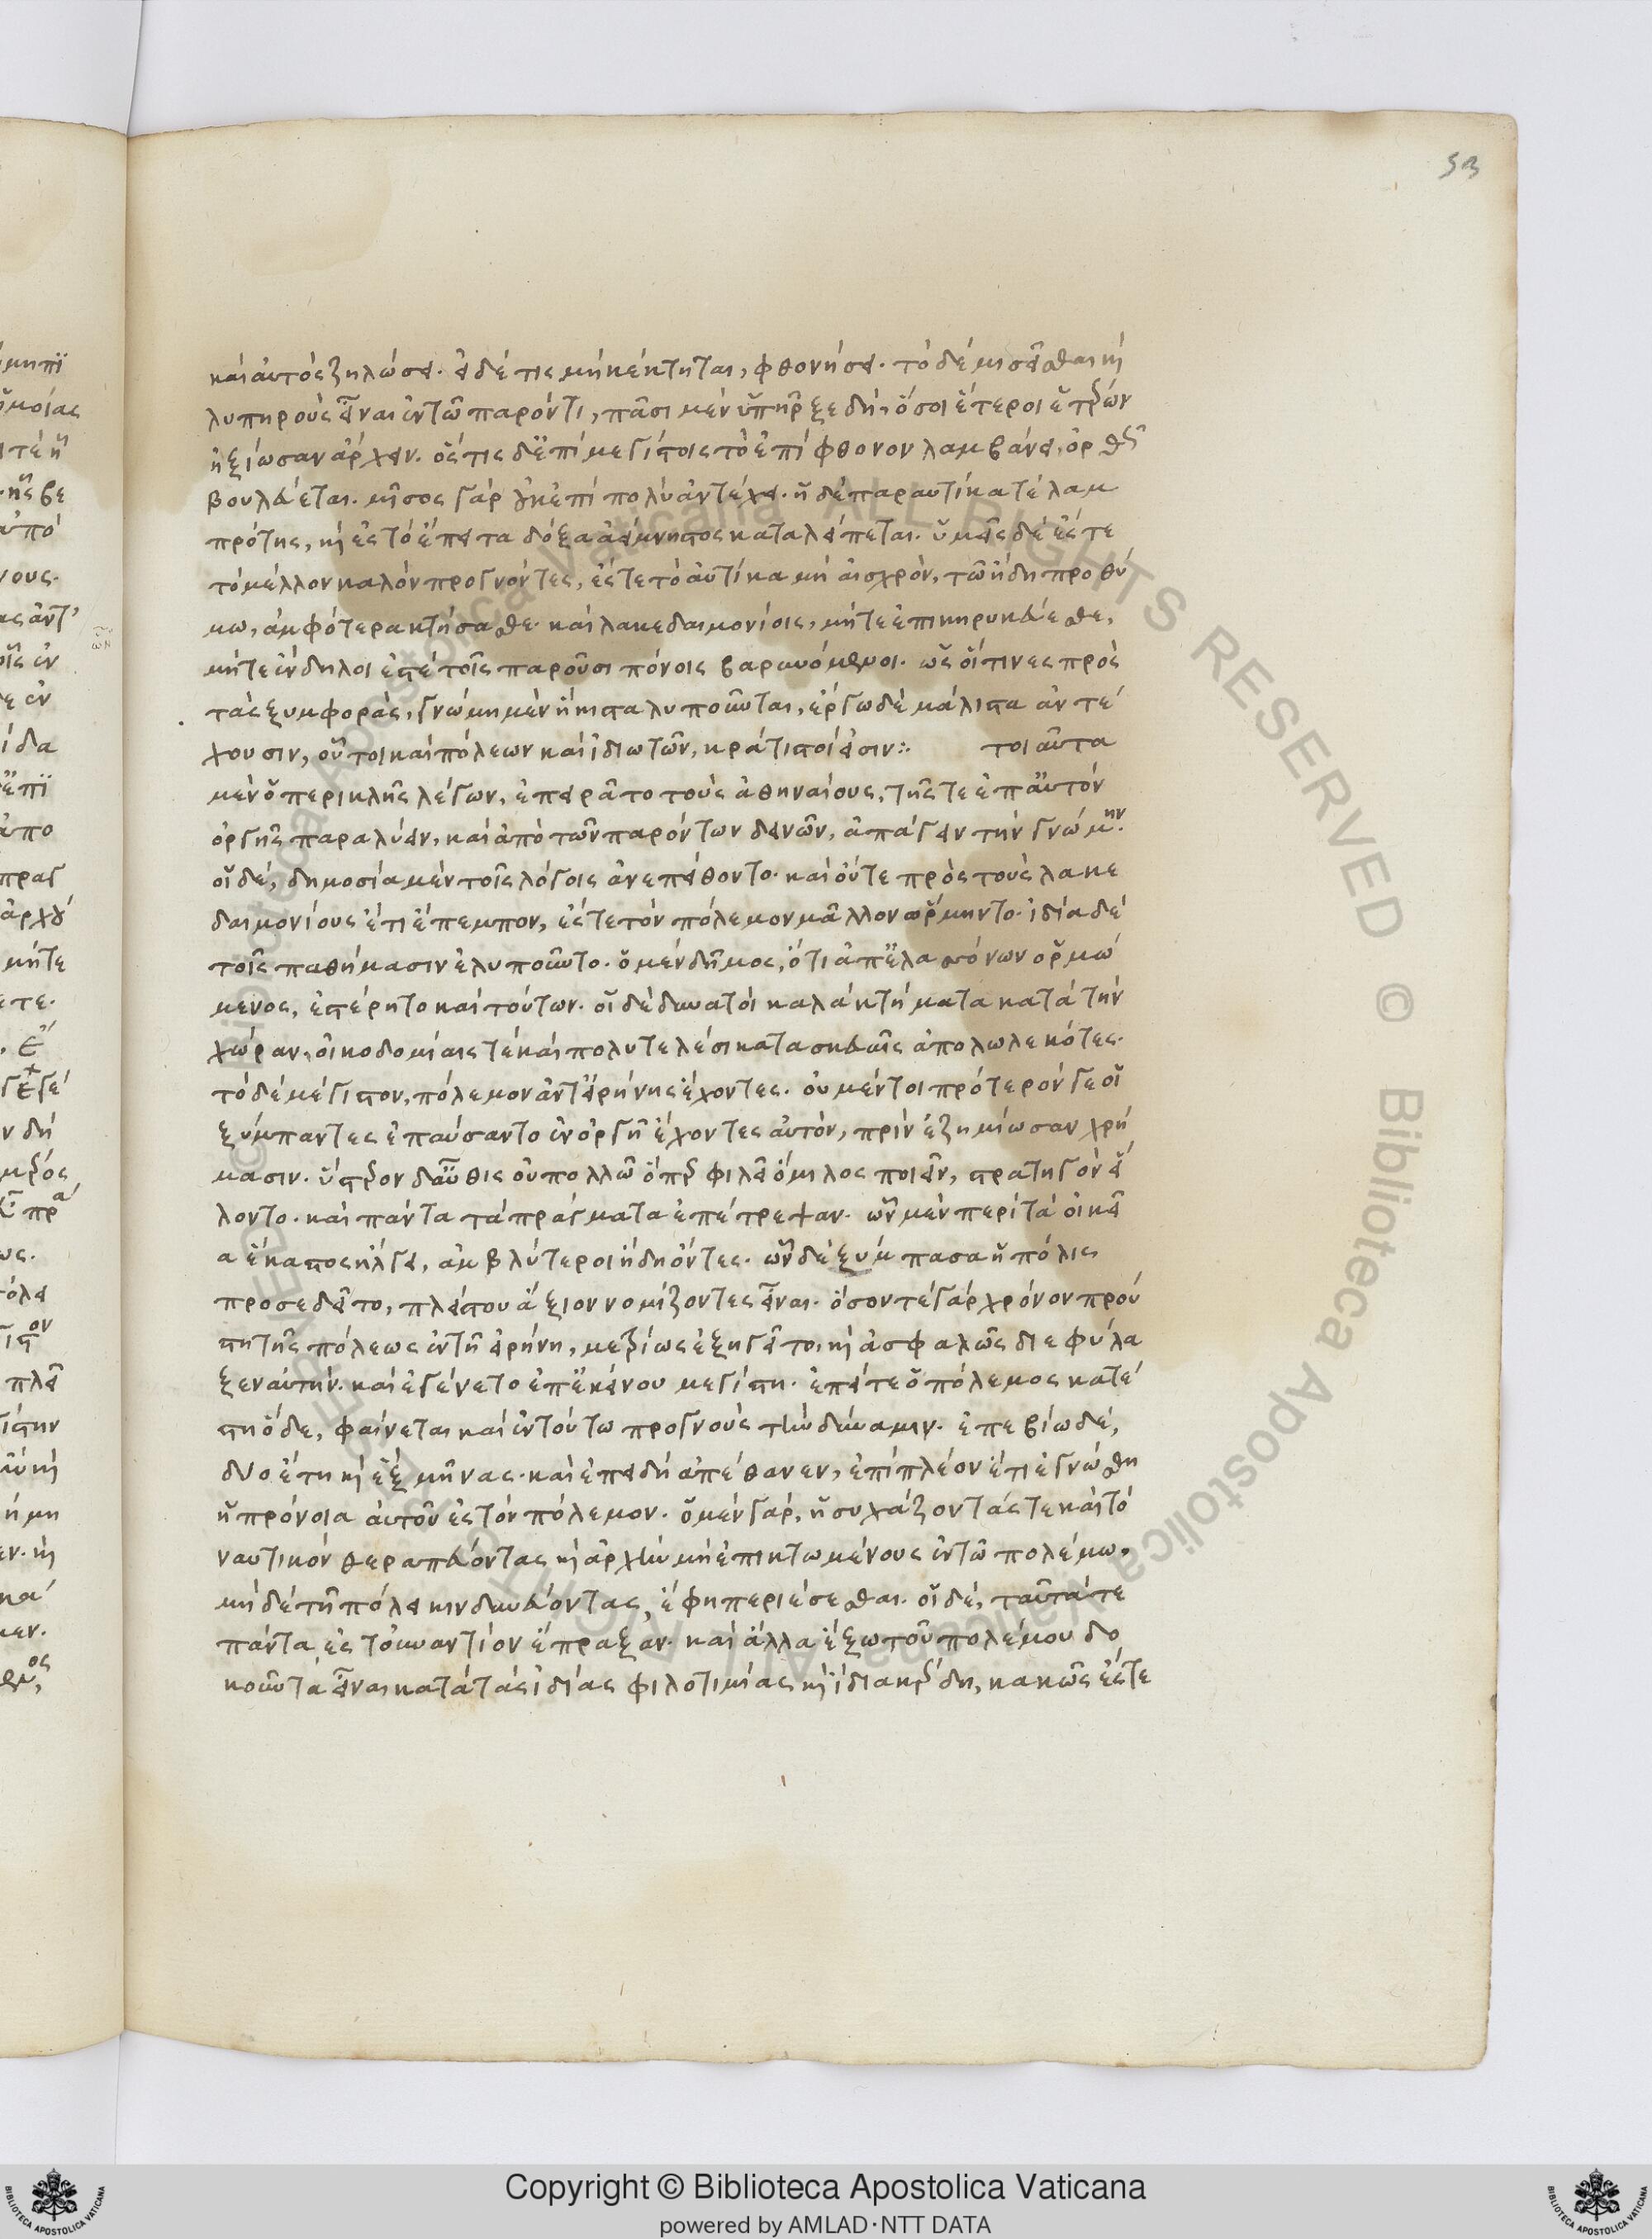 53
καὶ αὐτὸς ζηλώσει. εἰ δέ τις μὴ κέκτηται, φθονήσει. τὸ δὲ μισεῖσθαι καὶ
λυπηροὺς εἶναι ἐν τῶ παρόντι, πᾶσι μὲν ὑπῆρξε δὴ, ὅσοι ἕτεροι ἑτέρων
ἠξίωσαν ἄρχειν. ὅστις δ' ἐπὶ μεγίστοις τὸ ἐπίφθονον λαμβάνει, ὀρθῶς
βουλεύεται. μῖσος γὰρ οὐκ ἐπὶ πολὺ ἀντέχει. ἡ δὲ παραυτίκα τὲ λαμ
πρότης, καὶ ἐς τὸ ἔπειτα δόξα ἀείμνηστος καταλείπεται. ὑμεῖς δὲ ἔς τε
τὸ μέλλον καλὸν προγνόντες, ἔς τε τὸ αὐτίκα μὴ αἰσχρὸν, τῶ ἤδη προθύ
μω, ἀμφότερα κτήσασθε. καὶ λακεδαιμονίοις, μήτε ἐπικηρυκεύεσθε,
μήτε ἔνδηλοι ἐστὲ τοῖς παροῦσι πόνοις βαρυνόμενοι. ὡς οἵτινες πρὸς
τὰς ξυμφορὰς, γνώμη μὲν ἥκιστα λυποῦνται, ἔργω δὲ μάλιστα ἀντέ
χουσιν, οὗτοι καὶ πόλεων καὶ ἰδιωτῶν, κράτιστοί εἰσιν:. τοιαῦτα
μὲν ὁ περικλῆς λέγων, ἐπειρᾶτο τοὺς ἀθηναίους, τῆς τε ἐπ' αὑτὸν
ὀργῆς παραλύειν, καὶ ἀπὸ τῶν παρόντων δεινῶν, ἀπάγειν τὴν γνώμην.
οἱ δὲ, δημοσία μὲν τοῖς λόγοις ἀνεπείθοντο. καὶ οὔτε πρὸς τοὺς λακε
δαιμονίους ἔτι ἔπεμπον, ἔς τε τὸν πόλεμον μᾶλλον ὥρμηντο. ἰδία δὲ
τοῖς παθήμασιν ἐλυποῦντο. ὁ μὲν δῆμος, ὅτι ἀπ' ἐλασσόνων ὁρμώ
μενος, ἐστέρητο καὶ τούτων. οἱ δὲ δυνατοὶ καλὰ κτήματα κατὰ τὴν
χώραν, οἰκοδομίαις τὲ καὶ πολυτελέσι κατασκευαῖς ἀπολωλεκότες.
τὸ δὲ μέγιστον, πόλεμον ἀντ' εἰρήνης ἔχοντες. οὐ μέντοι πρότερόν γε οἱ
ξύμπαντες ἐπαύσαντο ἐν ὀργῆ ἔχοντες αὐτὸν, πρὶν ἐζημίωσαν χρή
μασιν. ὕστερον δ' αὖθις οὐ πολλῶ ὅπερ φιλεῖ ὅμιλος ποιεῖν, στρατηγὸν εἵ
λοντο. καὶ πάντα τὰ πράγματα ἐπέτρεψαν. ὧν μὲν περὶ τὰ οἰκεῖ
α ἕκαστος ἤλγει, ἀμβλύτεροι ἤδη ὄντες. ὧν δὲ ξύμπασα ἡ πόλις
προσεδεῖτο, πλείστου ἄξιον νομίζοντες εἶναι. ὅσον τε γὰρ χρόνον πρού
στη τῆς πόλεως ἐν τῆ εἰρήνη, μετρίως ἐξηγεῖτο, καὶ ἀσφαλῶς διεφύλα
ξεν αὐτὴν. καὶ ἐγένετο ἐπ' ἐκείνου μεγίστη. ἐπεί τε ὁ πόλεμος κατέ
στη ὅδε, φαίνεται καὶ ἐν τούτω προγνοὺς τὴν δύναμιν. ἐπεβίω δὲ,
δύο ἔτη καὶ ἓξ μῆνας. καὶ ἐπειδὴ ἀπέθανεν, ἐπὶ πλέον ἔτι ἐγνώσθη
ἡ πρόνοια αὐτοῦ ἐς τὸν πόλεμον. ὁ μὲν γὰρ, ἡσυχάζοντάς τε καὶ τὸ
ναυτικὸν θεραπεύοντας καὶ ἀρχὴν μὴ ἐπικτωμένους ἐν τῶ πολέμω,
μὴ δὲ τῆ πόλει κινδυνεύοντας, ἔφη περιέσεσθαι. οἱ δὲ, ταῦτά τε
πάντα ἐς τοὐναντίον ἔπραξαν. καὶ ἄλλα ἔξω τοῦ πολέμου δο
κοῦντα εἶναι κατὰ τὰς ἰδίας φιλοτιμίας καὶ ἴδια κέρδη, κακῶς ἔς τε
Copyright © Biblioteca Apostolica Vaticana
powered by AMLAD·NTT DATA